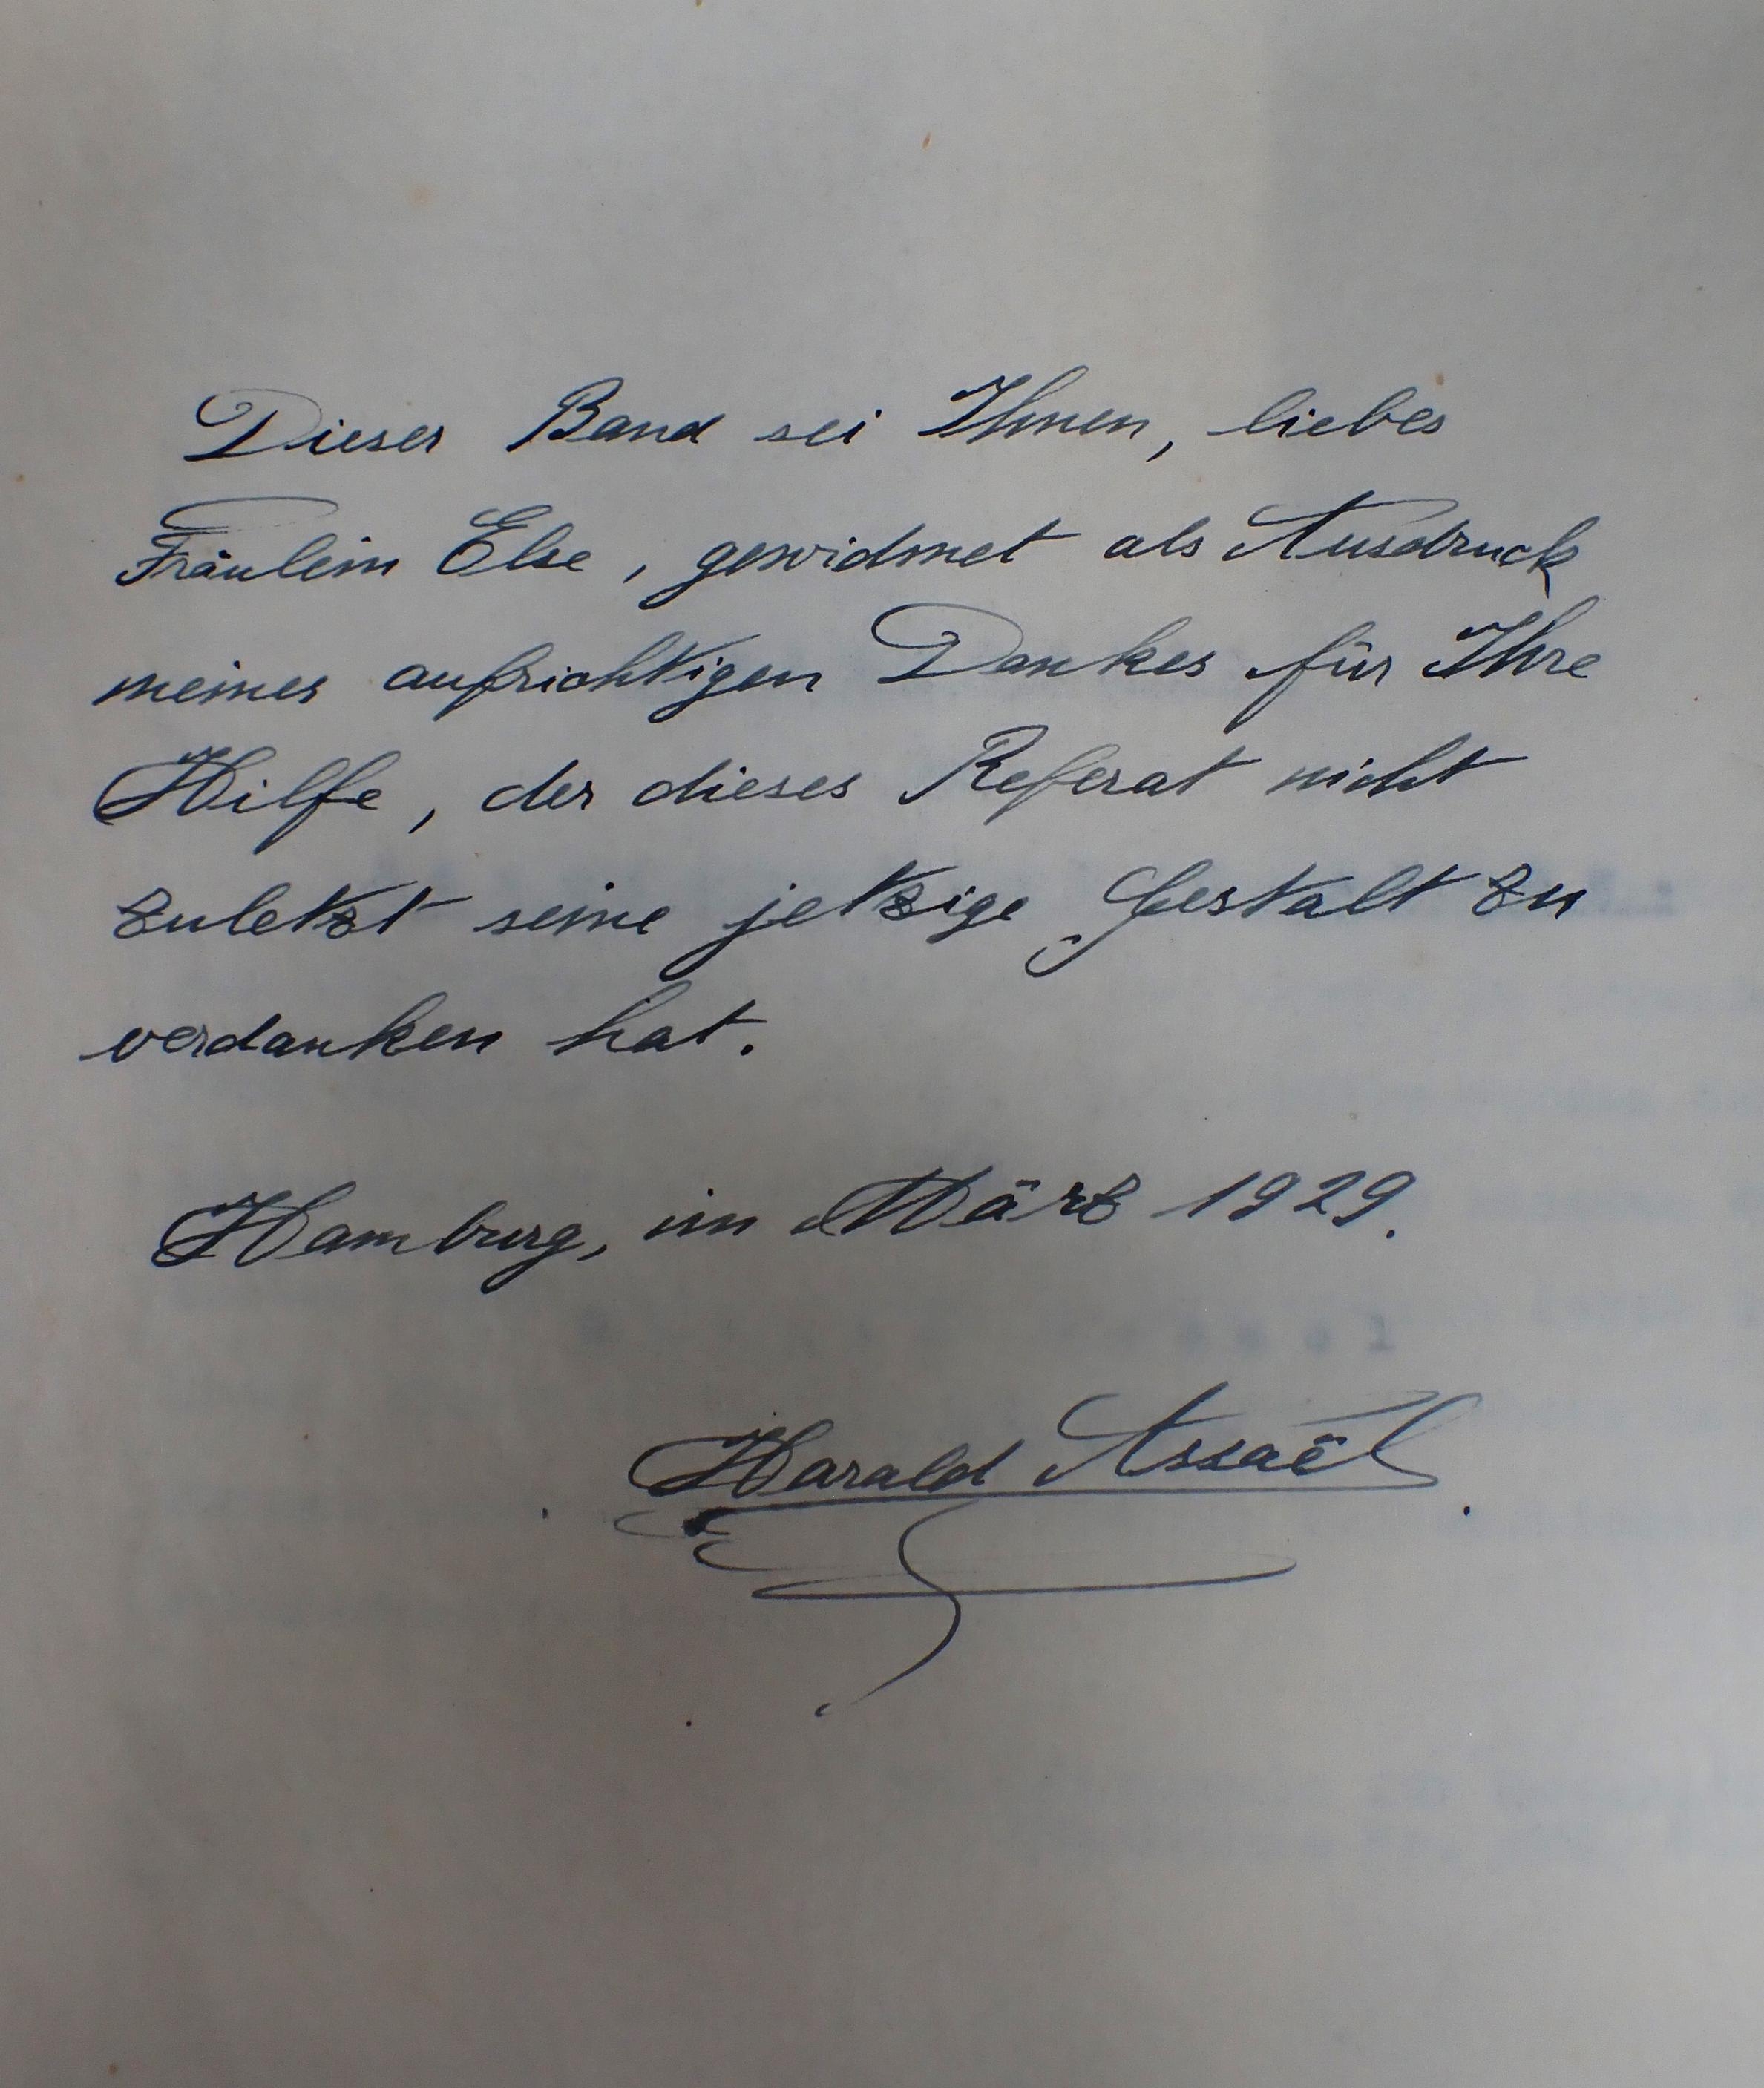 Dieser Band sei Ihnen, liebes
Fräulein Else, gewidmet als Ausdruck
meines aufrichtigen Dankes für Ihre
Hilfe, der dieses Referat nicht
zuletzt seine jetzige Gestalt zu
verdanken hat.
Hamburg, im März 1929.
Harald Assaël